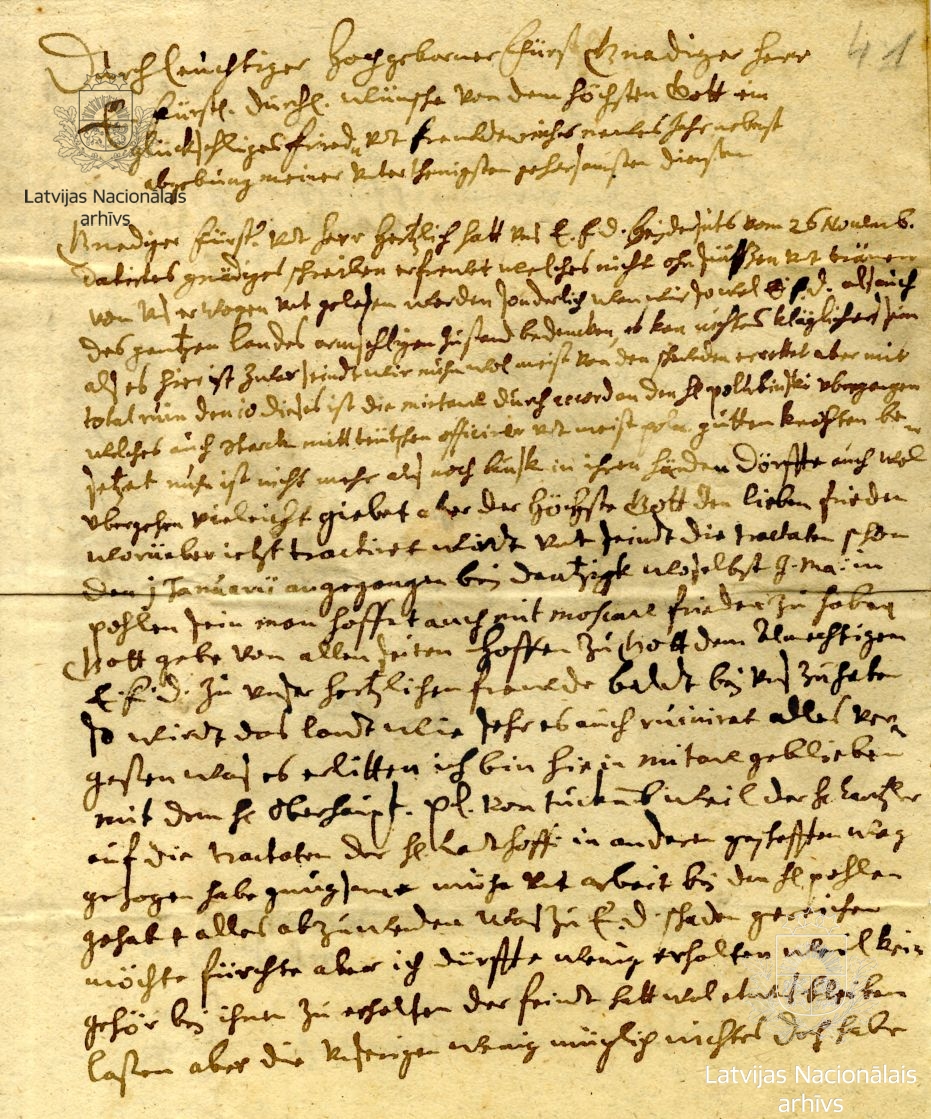 41
Durchleuchtiger Hochgeborner Fürst Gnediger Herr
E fürstl. Durchl. wünsche von dem höchsten Gott ein
glückseliges fried vnd freudenreiches neues Jahr nebenst
abgebung meiner vnterthenigsten gehorsamsten diensten
Latvijas Nacionālais
arhīvs
Gnediger Fürst vnd Herr Hertzlich hatt vns E. f. d. beyderseits vom 26 Novemb.
datirtes gnediges schreiben erfreuet welches nicht ohn seüfftzen vnd tränen
von vns erwogen vnd gelesen worden sonderlich wen wir sowol E. f. d. als auch
des gantzen landes armsehligen zustand bedencken, es kan nichtes kläglicher sein
als es hier ist zwar seindt wir nuhn wol meist von den schweden errettet aber mit
total ruin den 10 dieses ist die mietau durch accord an den H. polubinski vbergangen
welches auch starck mitt teütschen officirer vnd meist gutten knechten be
setzet nuhn ist nicht mehr als noch bausk in ihren händen dörffte auch wol
vbergehen vieleicht giebet aber der Höchste Gott den lieben frieden
worüeber ietzt tractiret wirdt vnd seindt die tractaten schon
den j Januarii angegangen bey dantzigk woselbst I. Maj: in
pohlen sein man hoffet auch mit moscau frieden zu haben
Gott gebe von allen seiten hoffen zu Gott dem Almechtigen
E. f. d. zu vnser hertzlichen freude baldt bey vns zu haben
so wirdt das landt wie sehr es auch ruiniret alles ver
gessen was es erlitten ich bin hie in mitau geblieben
mit dem H. Oberhaupt. von tuckumb weil der H. Cantzler
auf die tractaten der H. Landhoff: in anderen geschefften weg
gezogen habe gnugsame mühe vnd arbeit bey den H. pohlen
gehabt alles abzuwenden was zu E. f. d. schaden gereichen
möchte fürchte aber ich dürffte wenig erhalten weil kein
gehör bey ihnen zu erhalten der feindt hatt wol etwas bleiben
lassen aber die vnserigen wenig müglich nichtes doch habe
Latvijas Nacionālais
arhīvs